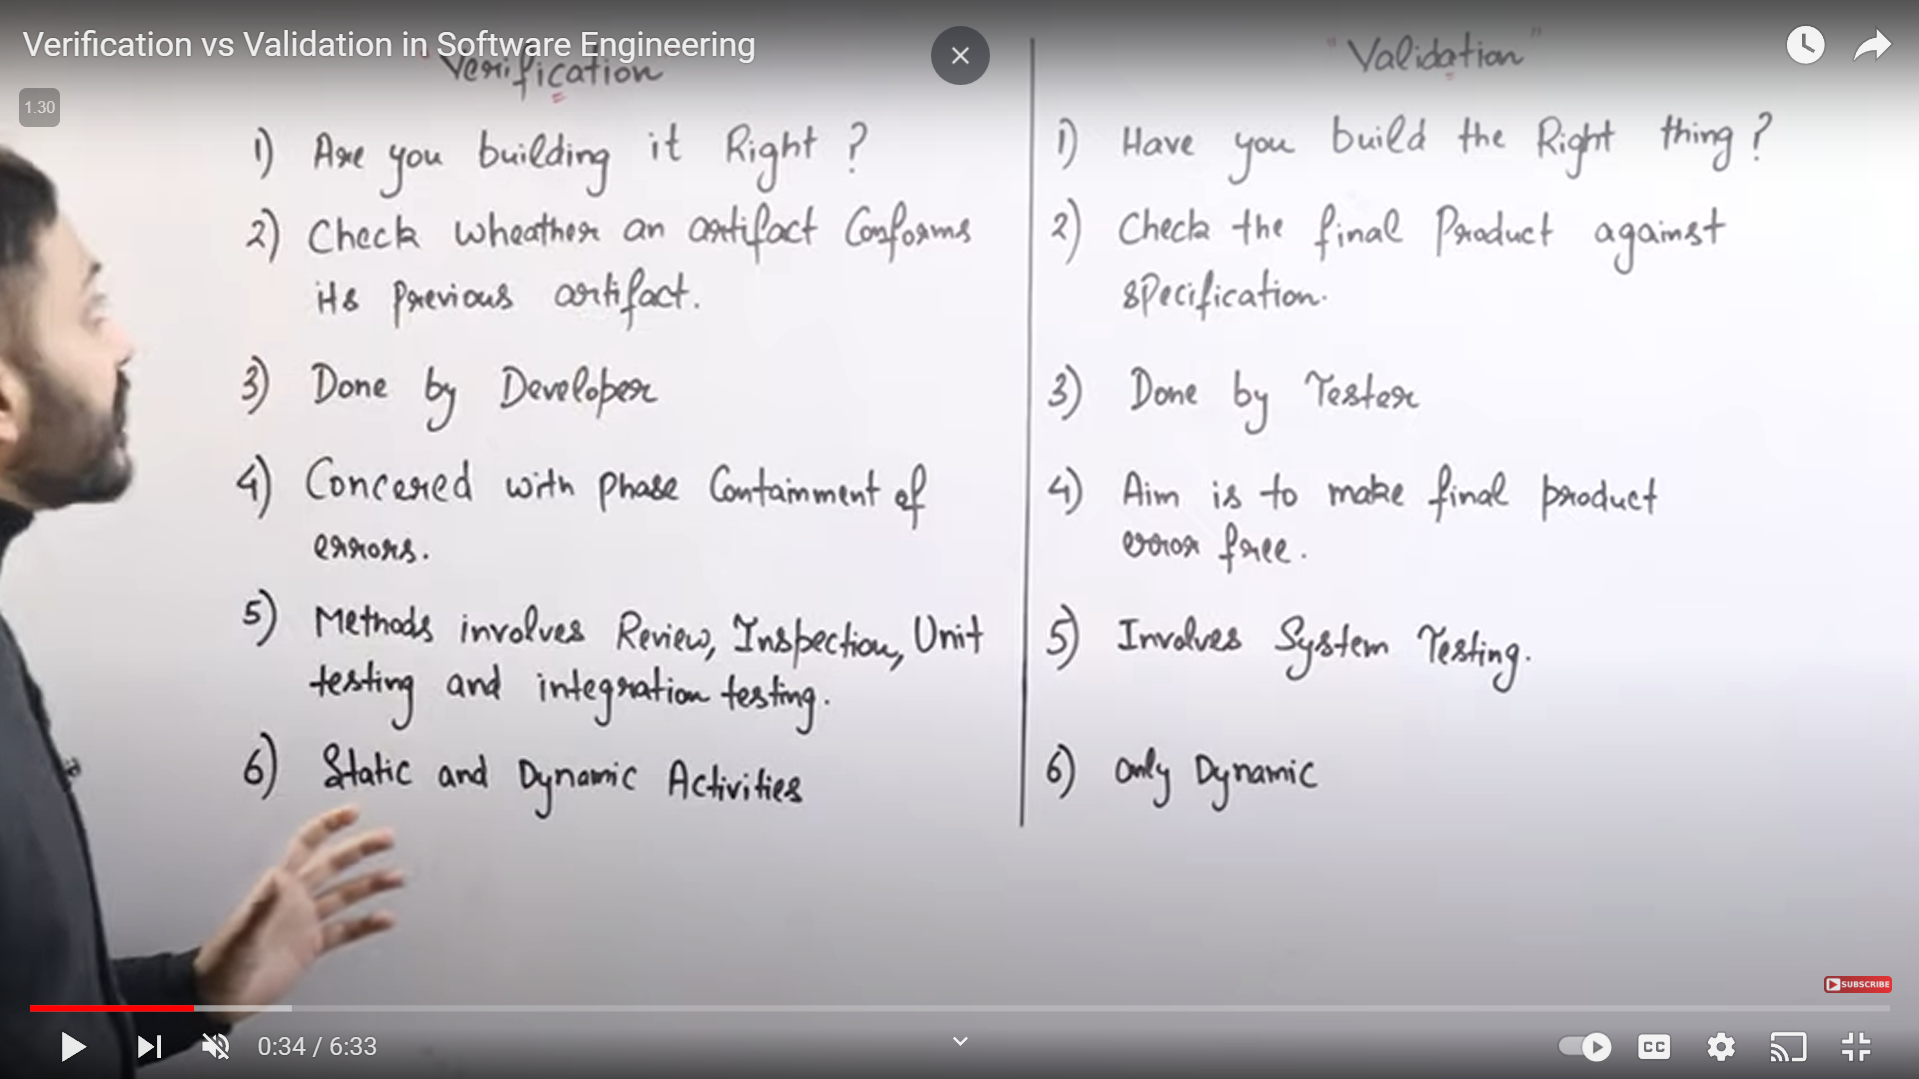 Verification vs Validation in Software Engineering
Verification
1.30
1) Are you building it Right ?
2) Check wheather an artifact Conforms
its previous artifact.
3) Done by Developer
4) Concered with phase Containment of
errors.
5) Methods involves Review, Inspection, Unit
testing and integration testing.
6) Static and Dynamic Activities
"Validation"
1) Have you build the Right thing ?
2) Check the final Product against
specification.
3) Done by Tester
4) Aim is to make final product
error free.
5) Involves System Testing.
6) Only Dynamic
SUBSCRIBE
0:34 / 6:33
CC